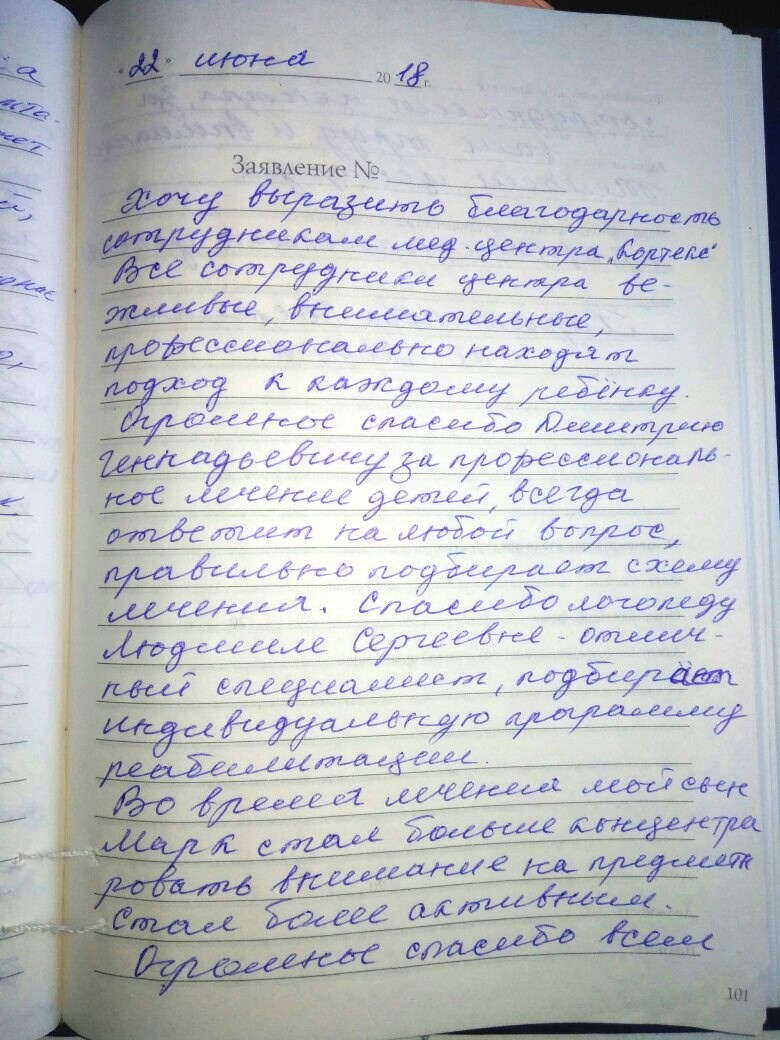 "22" июня 2018 г.
Заявление №
Хочу выразить благодарность
сотрудникам мед. центра „Кортекс"
Все сотрудники центра ве-
жливые, внимательные,
профессионально находят
подход к каждому ребёнку.
Огромное спасибо Дмитрию
Геннадьевичу за профессиональ-
ное лечение детей, всегда
ответит на любой вопрос,
правильно подбирает схему
лечения. Спасибо логопеду
Людмиле Сергеевне - отлич-
ный специалист, подбирает
индивидуальную программу
реабилитации.
Во время лечения мой сын
Марк стал больше концентри
ровать внимание на предмета
стал более активным.
Огромное спасибо всем
101